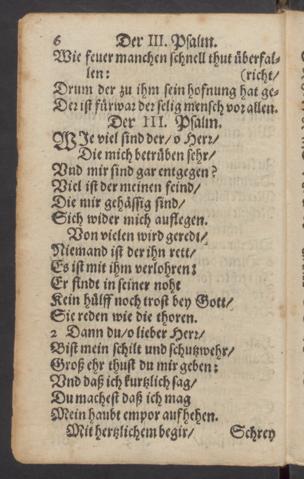 6 Der III. Psalm.
Wie feuer manchen schnell thut überfal-
len: (richt/
Drum der zu ihm sein hofnung hat ge-
Der ist fürwar der selig mensch vor allen.
Der III. Psalm.
WJe viel sind der/ o Herr/
Die mich betrüben sehr/
Vnd mir sind gar entgegen?
Viel ist der meinen feind/
Die mir gehässig sind/
Sich wider mich auflegen.
Von vielen wird geredt/
Niemand ist der ihn rett/
Es ist mit ihm verlohren:
Er findt in seiner noht
Kein hülff noch trost bey Gott/
Sie reden wie die thoren.
2 Dann du/ o lieber Herr/
Bist mein schilt und schutzwehr/
Groß ehr thust du mir geben:
Vnd daß ich kurtzlich sag/
Du machest daß ich mag
Mein haubt empor aufhehen.
Mit hertzlichem begir/ Schrey